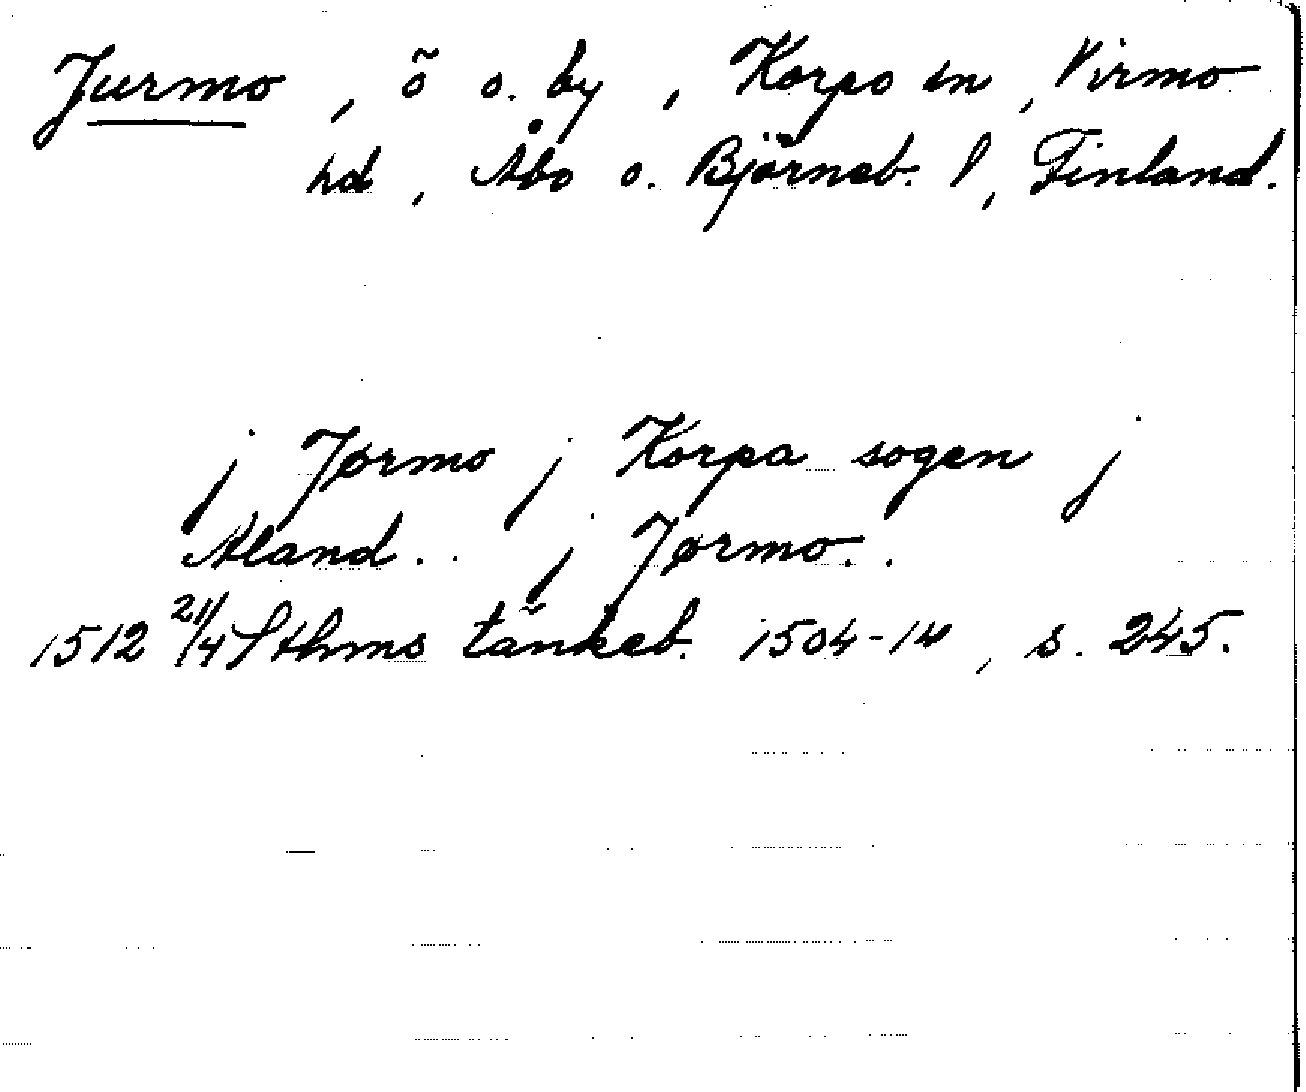 Jurmo, ö o. by, Korpo sn, Virmo
hd, Åbo o. Björneb. l, Finland.
j Jørmo j Korpa sogen j
Aland.. j Jørmo..
1512 21/4 Sthms tänkeb. 1504-14, s. 245.